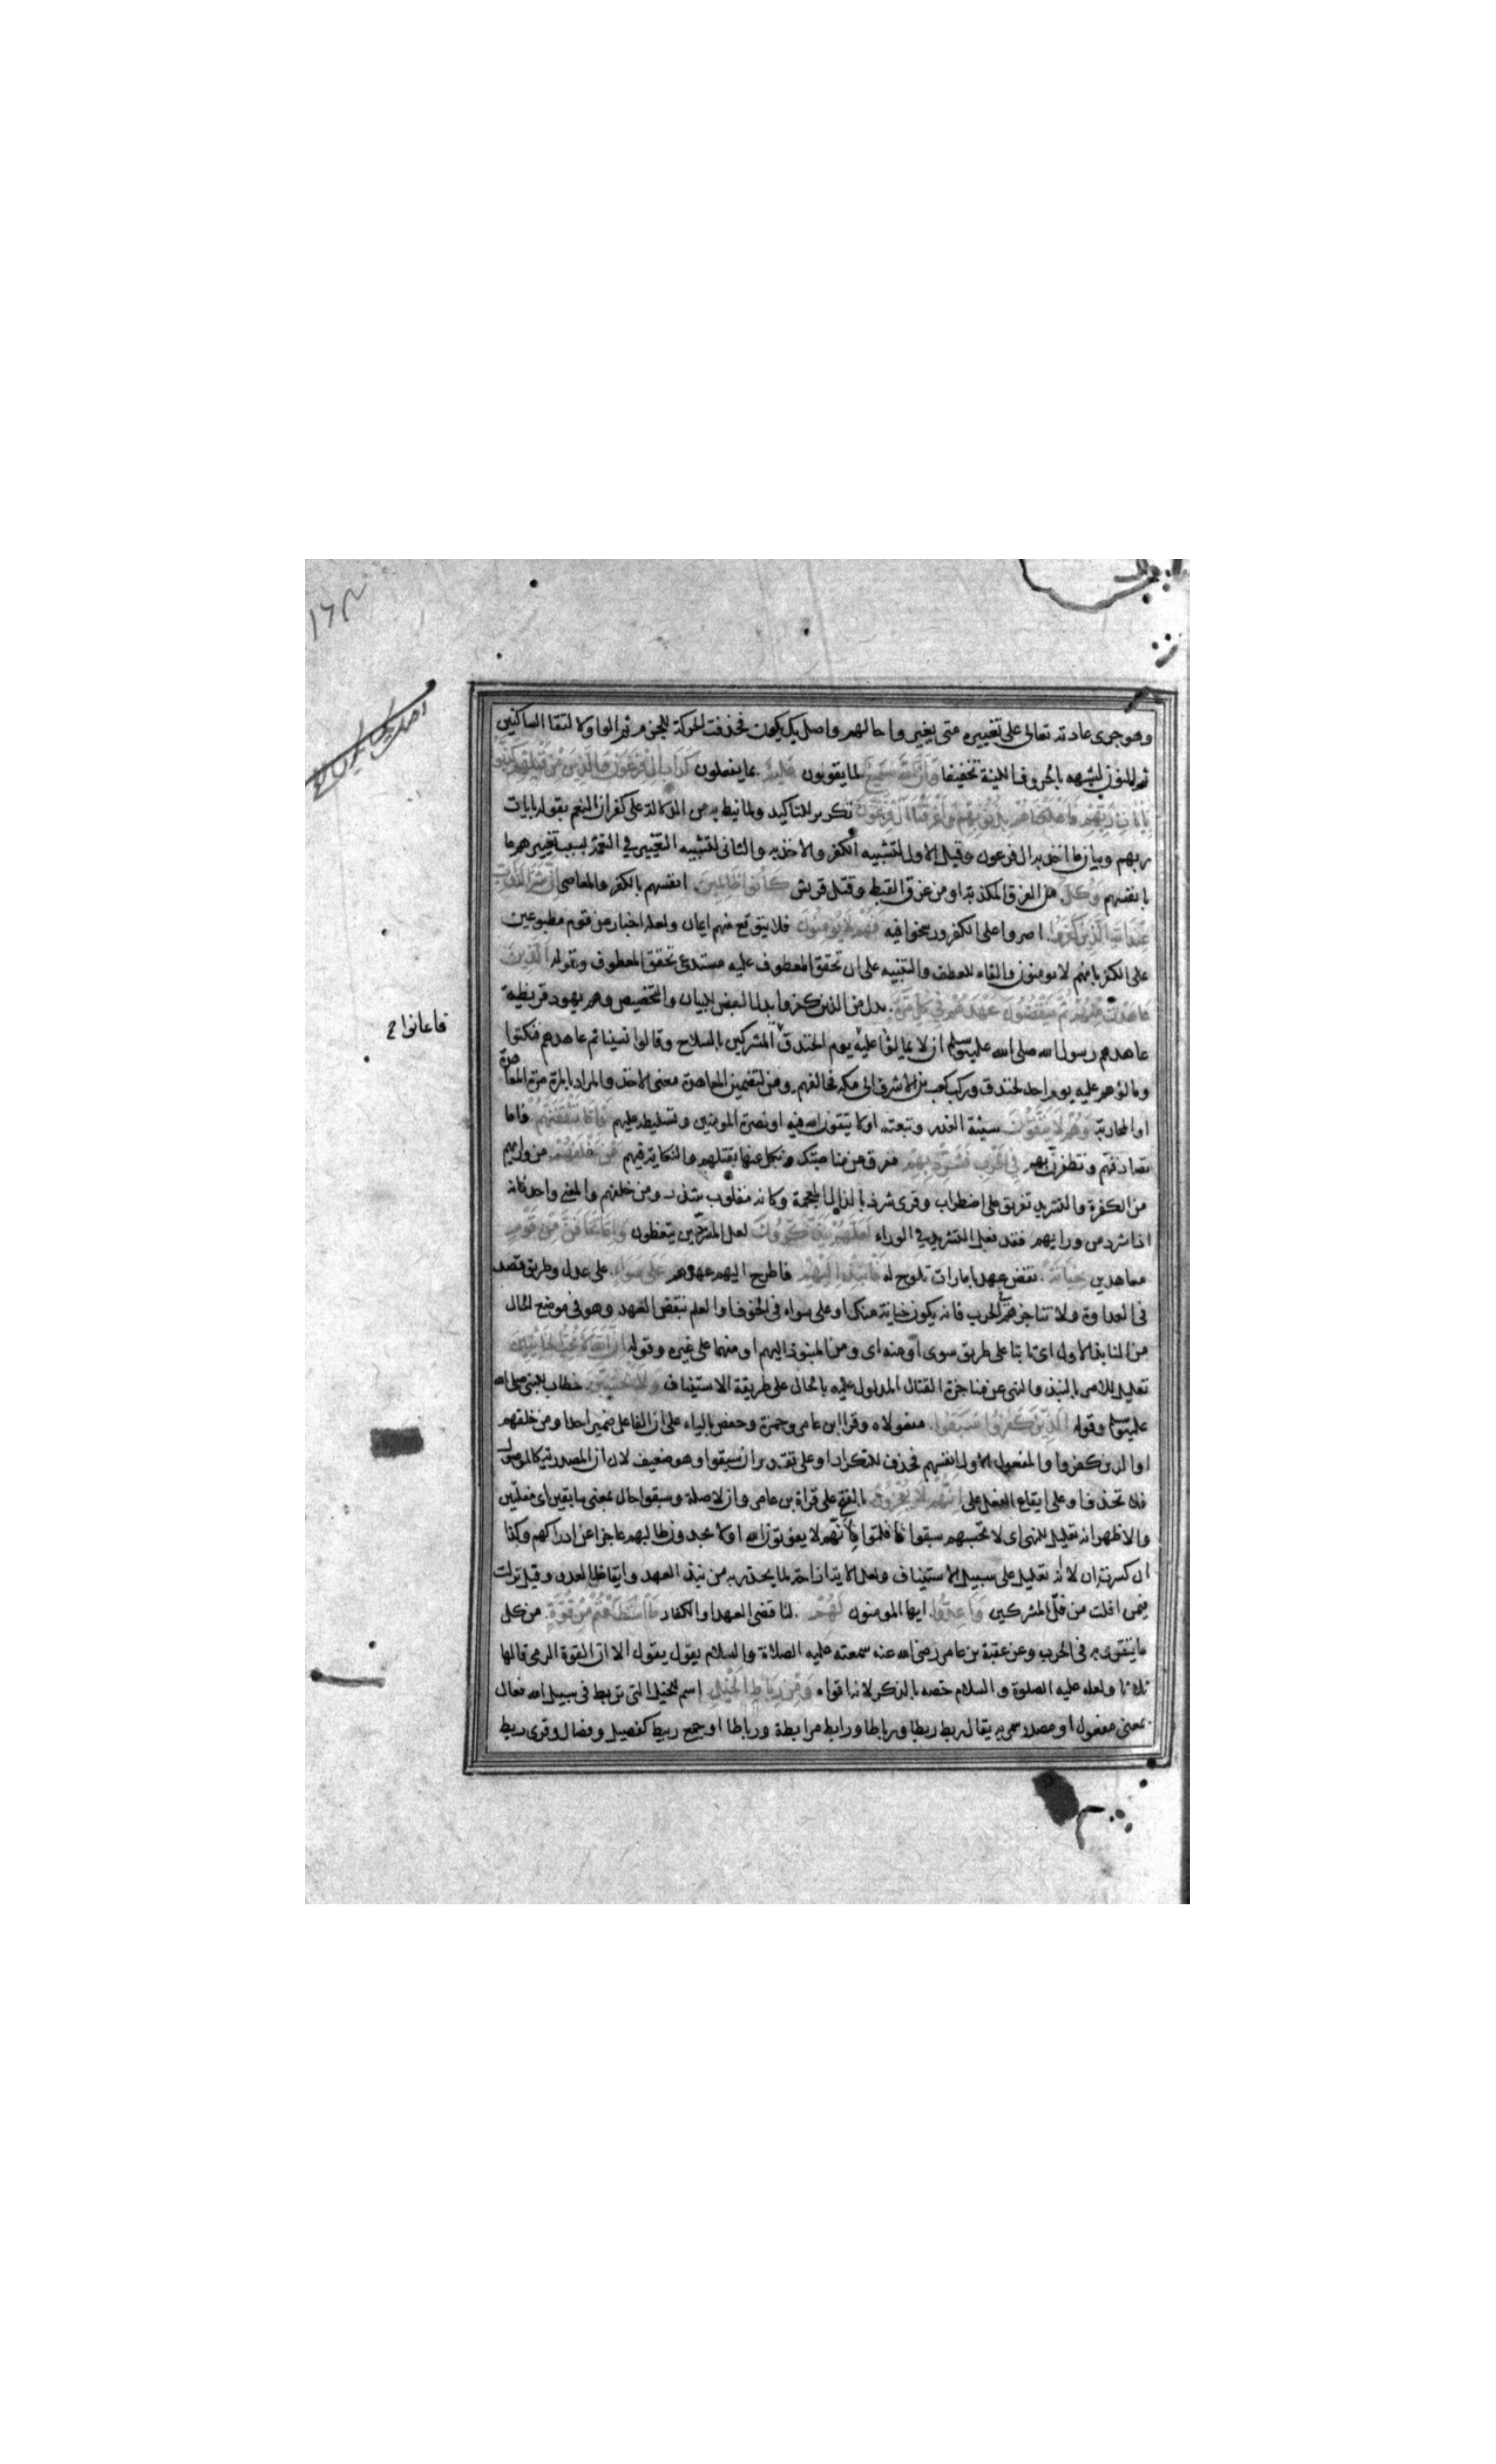 وهو جرى عادته تعالى على تغييره متى يغيروا حالهم واصل يك يكون فحذفت الحركة للجزم ثم الواو لالتقا الساكنين
ثم النون لشبهه بالحروف اللينة تخفيفا وان الله سميع لما يقولون عليم بما يفعلون كداب ال فرعون والذين من قبلهم كذبوا
بايات ربهم فاهلكناهم بذنوبهم واغرقنا ال فرعون تكرير للتاكيد ولما نيط به من الدلالة على كفران النعم بقوله بايات
ربهم وبيان ما اخذ به ال فرعون وقيل الاول لتشبيه الكفر والاخذ به والثانى لتشبيه التغيير في النعمة بسبب تغييرهم ما
بانفسهم وكل من الفرق المكذبة او من غرق القبط وقتل قريش كانوا ظالمين انفسهم بالكفر والمعاصى ان شر الدواب
عند الله الذين كفروا اصروا على الكفر ورسخوا فيه فهم لا يومنون فلا يتوقع منهم ايمان ولعله اخبار عن قوم مطبوعين
على الكفر بانهم لا يومنون والفاء للعطف والتنبيه على ان تحقق المعطوف عليه مستدعى تحقق المعطوف وقوله الذين
عاهدت منهم ثم ينقضون عهدهم في كل مرة بدل من الذين كفروا بدل البعض للبيان والتخصيص وهم يهود قريظة
عاهدهم رسول الله صلى الله عليه وسلم ان لا يمالئوا عليه يوم الخندق المشركين بالسلاح وقالوا نسينا ثم عاهدهم فنكثوا
ومالؤهم عليه يوم الخندق وركب كعب بن الاشرف الى مكة فحالفهم ومن لتضمين المعاهدة معنى الاخذ والمراد بالمرة مرة المعاهدة
او المحاربة وهم لا يتقون سيئة الغدر وتبعته او لا يتقون الله فيه او نصرة المومنين وتسليطه عليهم فاما تثقفنهم فاما
تصادفنهم وتظفرن بهم في الحرب فشرد بهم ففرق عن مناصبتك ونكل عنها بقتلهم والنكاية فيهم من خلفهم من ورايهم
من الكفرة والتشريد تفريق على اضطراب وقرى شرذ بالذال المعجمة وكانه مقلوب شذر ومن خلفهم والمعنى واحد فانه
اذا شرد من ورايهم فقد فعل التشريد في الوراء لعلهم يذكرون لعل المشردين يتعظون واما تخافن من قوم
معاهدين خيانة نقض عهد بامارات تلوح لك فانبذ اليهم فاطرح اليهم عهدهم على سواء على عدل وطريق قصد
فى العداوة ولا تناجزهم الحرب فانه يكون خيانة منك او على سواء فى الخوف او العلم بنقض العهد وهو فى موضع الحال
من النابذ على الاول اى ثابتا على طريق سوى او منه اى ومن المنبوذ اليهم او منهما على غيره وقوله ان الله لا يحب الخائنين
تعليل للامر بالنبذ والنهى عن مناجزة القتال المدلول عليه بالحال على طريقة الاستيناف ولا تحسبن خطاب للنبى صلى الله
عليه وسلم وقوله الذين كفروا سبقوا مفعولاه وقرا ابن عامر وحمزة وحفص بالياء على ان الفاعل ضمير احد او من خلفهم
او الذين كفروا والمفعول الاول انفسهم فحذف للتكرار او على تقدير ان سبقوا وهو ضعيف لان ان المصدرية كالموصول
فلا تحذف او على ايقاع الفعل على انهم لا يعجزون بالفتح على قراة بن عامر وان لا صلة وسبقوا حال بمعنى سابقين اى مفلتين
والاظهر انه تعليل للنهى اى لا تحسبنهم سبقوا فافلتوا لانهم لا يفوتون الله او لا يجدون طالبهم عاجزا عن ادراكهم وكذا
ان كسرت ان لانه تعليل على سبيل الاستيناف ولعل الاية ازاحة لما يحذر به من نبذ العهد وايقاظ العدو وقيل نزلت
فيمن افلت من فل المشركين واعدوا ايها المومنون لهم لناقضى العهد او الكفار ما استطعتم من قوة من كل
ما يتقوى به فى الحرب وعن عقبة بن عامر رضى الله عنه سمعته عليه الصلاة والسلام يقول يقول الا ان القوة الرمى قالها
ثلاثا ولعله عليه الصلوة والسلام خصه بالذكر لانه اقواه ومن رباط الخيل اسم للخيل التى تربط فى سبيل الله فعال
بمعنى مفعول او مصدر سمى به يقال ربط ربطا ورباطا ورابط مرابطة ورباطا او جمع ربيط كفصيل وفصال وقرى ربط
فاعانوا ح